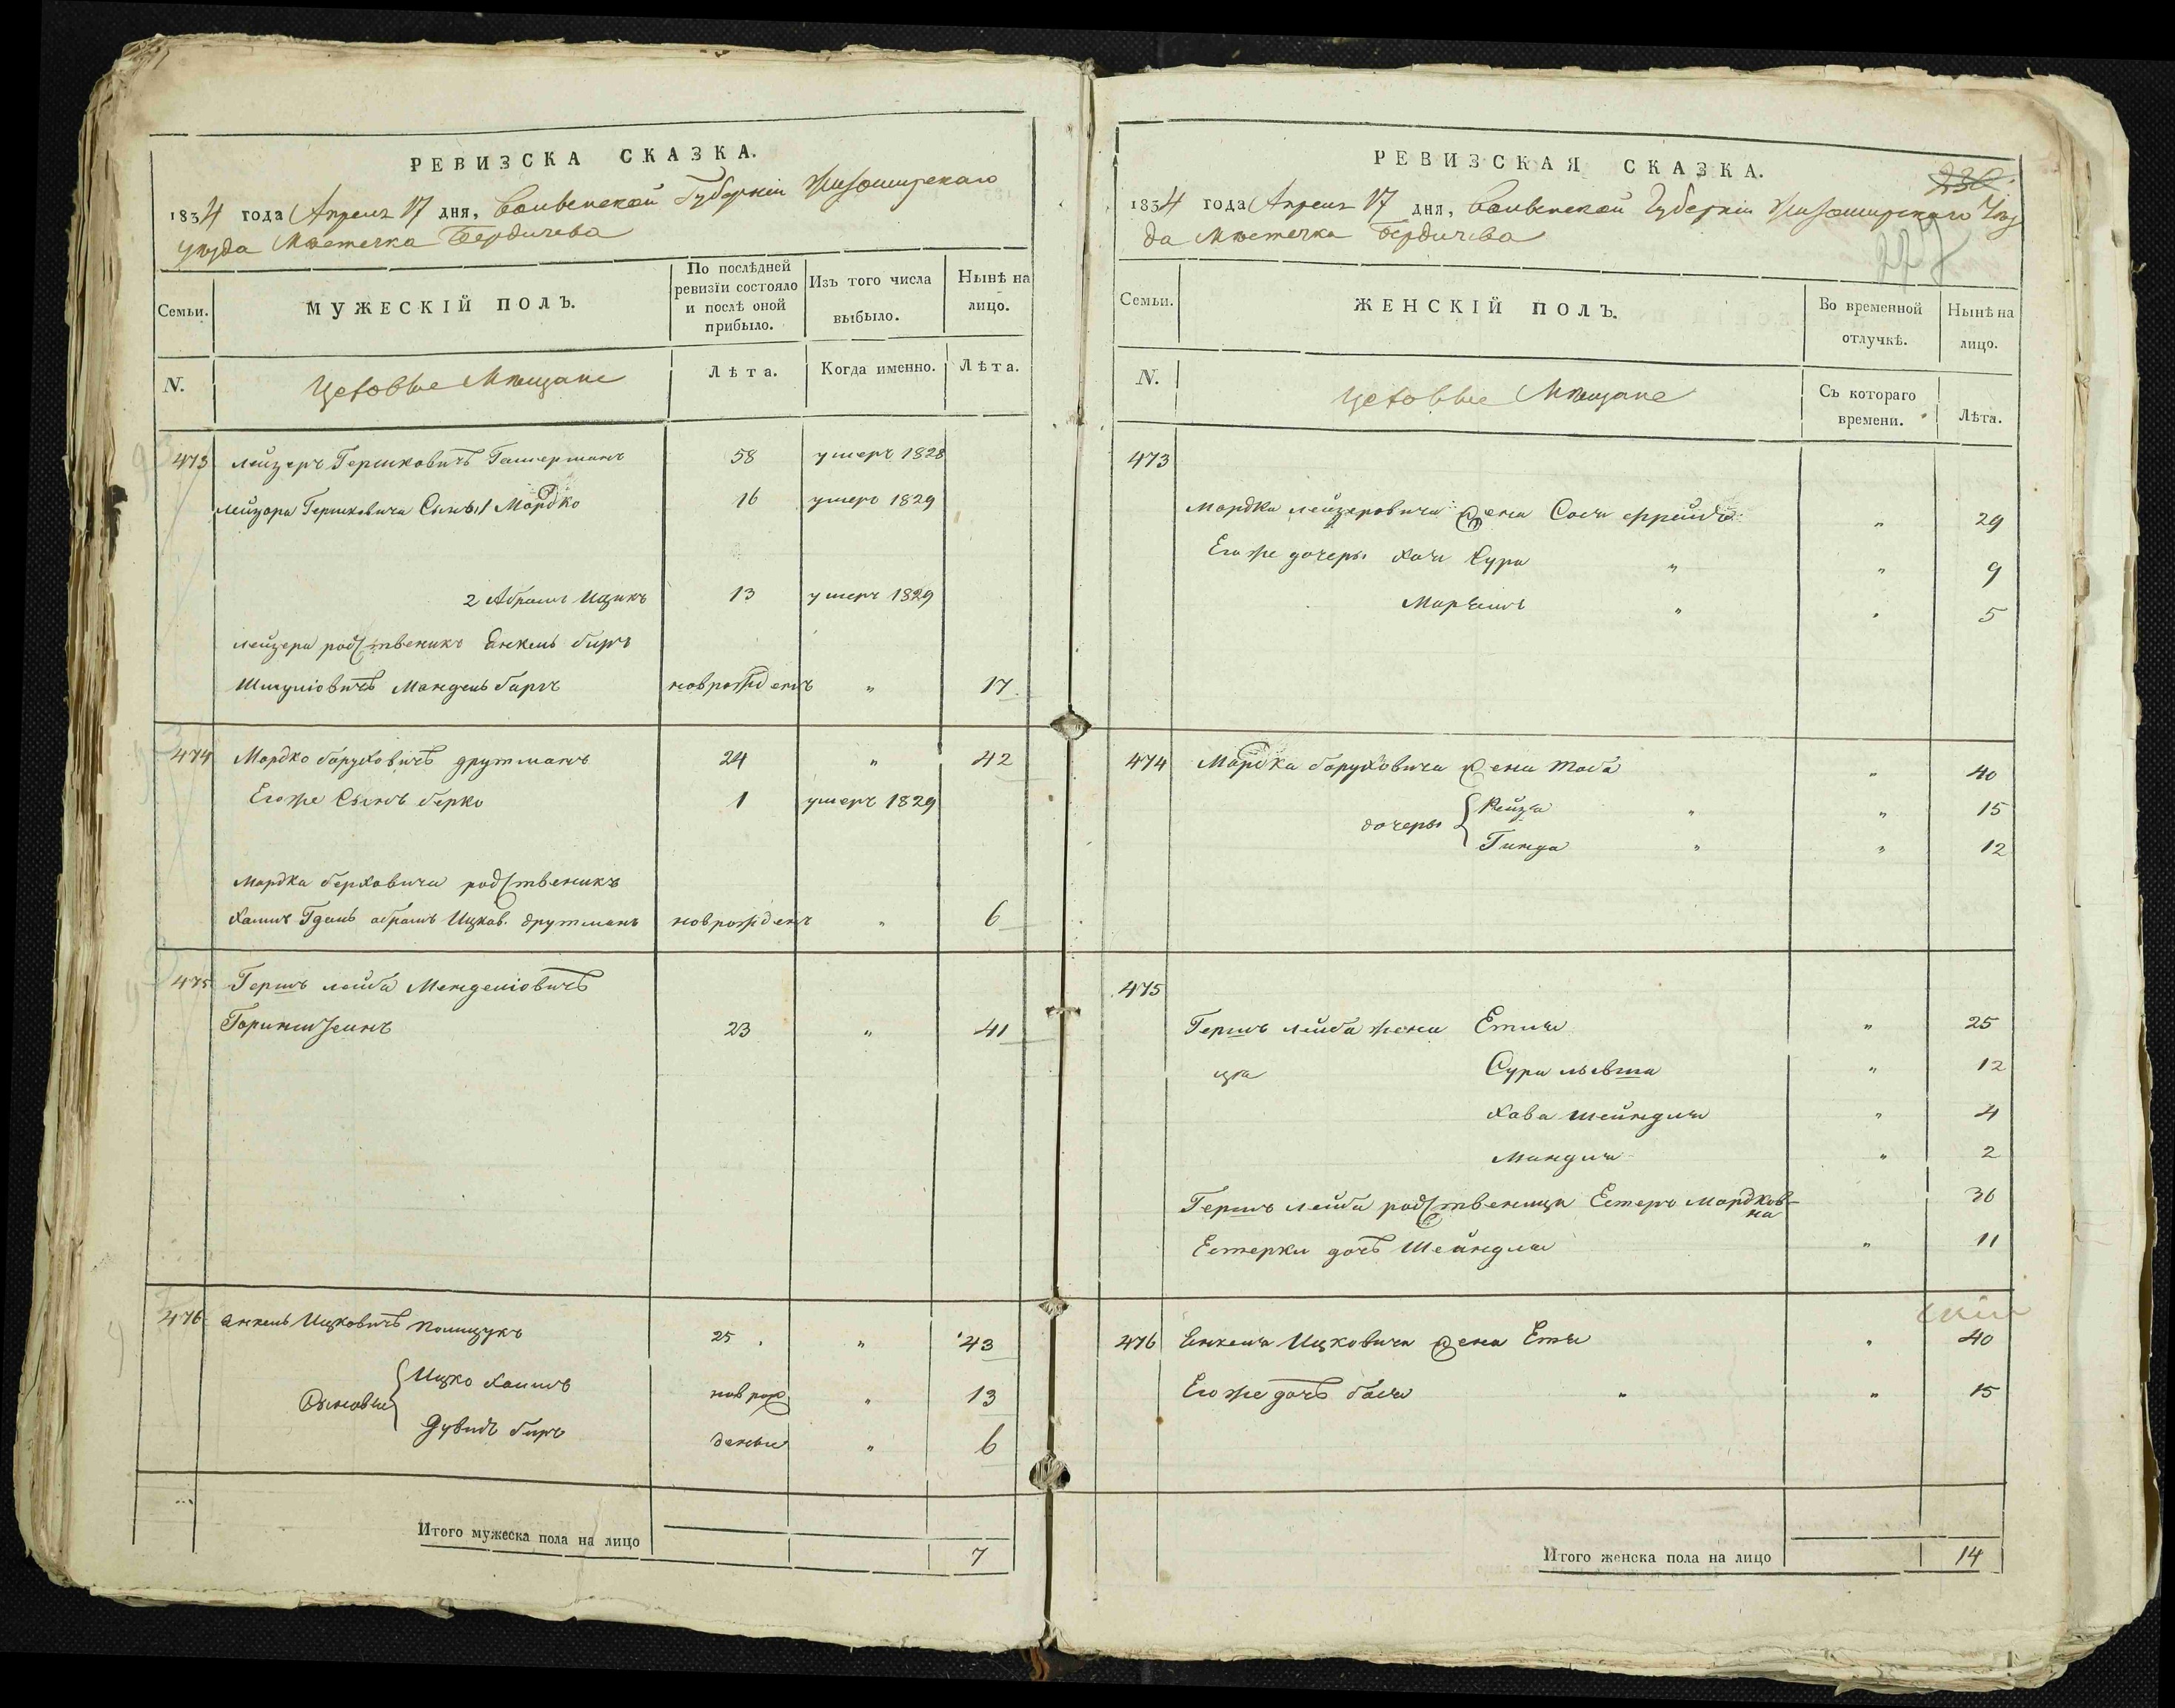 РЕВИЗСКА СКАЗКА.
1834 года Апреля 17 дня, Волынской Губернии Житомирского
уезда Местечка Бердичева
Семьи.
МУЖЕСКІЙ ПОЛЪ.
По послѣдней ревизіи состояло и послѣ оной прибыло.
Изъ того числа выбыло.
Нынѣ на лицо.
N.
Цеховые Мещане
Лѣта.
Когда именно.
Лѣта.
473 Лейзеръ Гершковичъ 58 умеръ 1828
Лейзора Гершковича Сынъ 1 Мордко 16 умеръ 1829
2 Абрамъ Ицикъ 13 умеръ 1829
Лейзера родственикъ Янкель беръ
Шмулiовичъ новрожденъ " 17
474 Мордко Боруховичъ Друтманъ 24 " 42
Его же Сынъ Берко 1 умеръ 1829
Мордка Берховича родственикъ
Хаимъ Абрамъ Ицков. Друтманъ новрожденъ " 6
475 Гершъ Лейба Менделiовичъ
23 " 41
476 Янкель Ицковичъ Полищукъ 25 " 43
Сыновья
Ицко Хаимъ новрож " 13
Дувидъ беръ дены " 6
Итого мужеска пола на лицо 7
РЕВИЗСКАЯ СКАЗКА.
230
1834 года Апреля 17 дня, Волынской Губернии Житомирского Уез
да Местечка Бердичева
227
Семьи.
ЖЕНСКІЙ ПОЛЪ.
Во временной отлучкѣ.
Нынѣ на лицо.
N.
Цеховые Мещане
Съ котораго времени.
Лѣта.
473
Мордка Лейзеровича жена Сося Фрейда " 29
Его же дочеры Хая Сура " " 9
Марьямъ " " 5
474 Мордка Боруховича жена Тоба " 40
дочеры
Рейзя " " 15
Гинда " " 12
475
Гершъ Лейба жена Етля " 25
Сура " 12
Хава Шейндля " 4
Миндля " 2
Гершъ Лейба родственица Естеръ Мордков-
на 36
Естерки дочъ Шейндля " 11
476 Янкеля Ицковича жена Етя " 40
Его же дочъ Бася " " 15
Итого женска пола на лицо 14